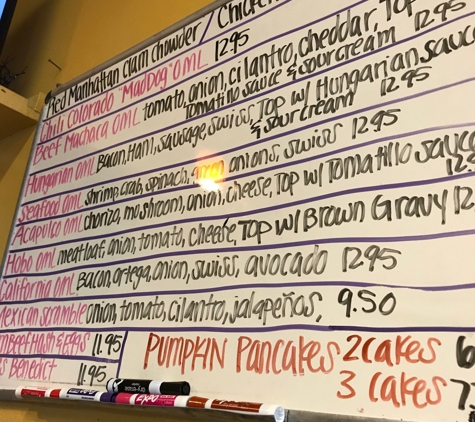 Red Manhattan Clam Chowder / Chicken
Chili Colorado "MadDog" OML 12.95
Beef Machaca OML tomato, onion, cilantro, cheddar, Top
Tomatillo sauce & sour cream 12.95
Hungarian OML Bacon, Ham, sausage, swiss, Top w/ Hungarian sauce
& sour cream 12.95
Seafood OML shrimp, crab, spinach, green onions, swiss 12.95
Acapulco OML chorizo, mushroom, onion, cheese, Top w/ Tomatillo sauce
12.
Hobo OML meatloaf, onion, tomato, cheese, Top w/ Brown Gravy 12
California OML Bacon, ortega, onion, swiss, avocado 12.95
Mexican scramble onion, tomato, cilantro, jalapeños, 9.50
Beef Hash & Eggs 11.95
Benedict 11.95
Pumpkin Pancakes 2 cakes 6
3 cakes 7.
EXPO